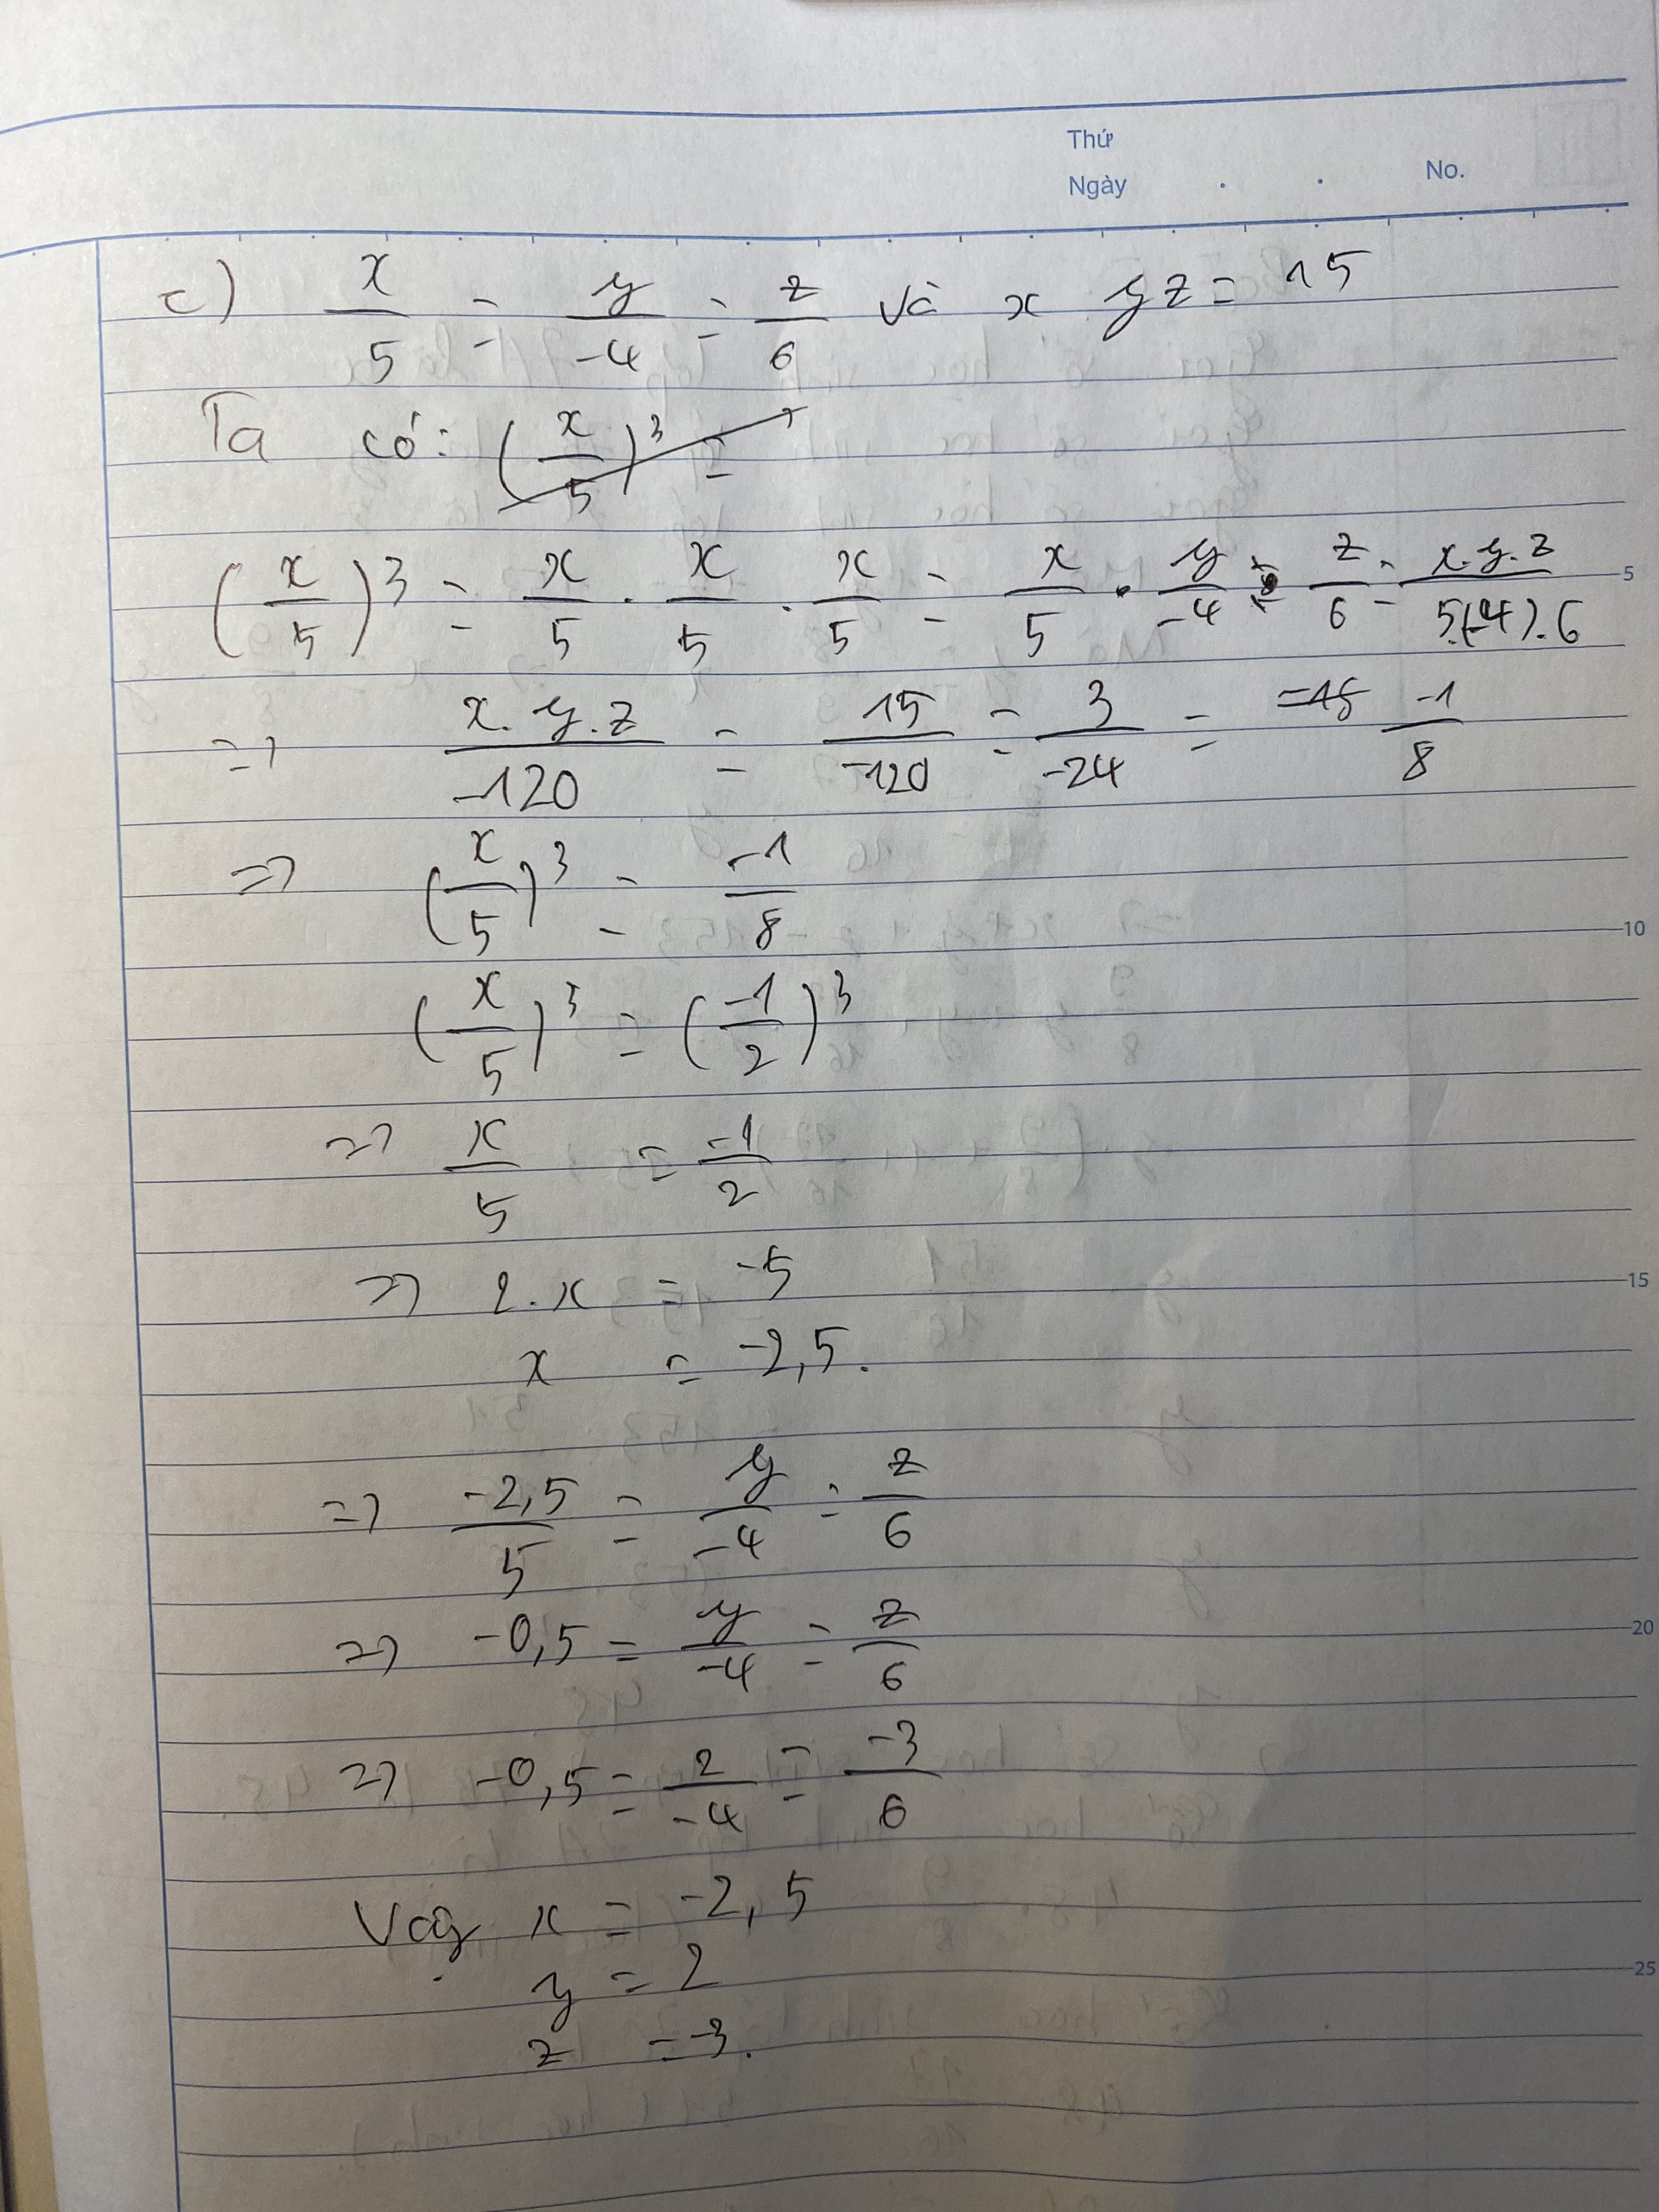 Thứ
Ngày . . No.
c) x/5 = y/-4 = z/6 và x yz = 15
Ta có: (x/5)³ =
(x/5)³ = x/5 . x/5 . x/5 = x/5 . y/-4 . z/6 = x.y.z/5.(-4).6
5
=> x.y.z/-120 = 15/-120 = 3/-24 = -1/8
=> (x/5)³ = -1/8
10
(x/5)³ = (-1/2)³
=> x/5 = -1/2
=> 2.x = -5
15
x = -2,5.
=> -2,5/5 = y/-4 = z/6
=> -0,5 = y/-4 = z/6
20
=> -0,5 = 2/-4 = -3/6
Vậy x = -2,5
y = 2
25
z = -3.